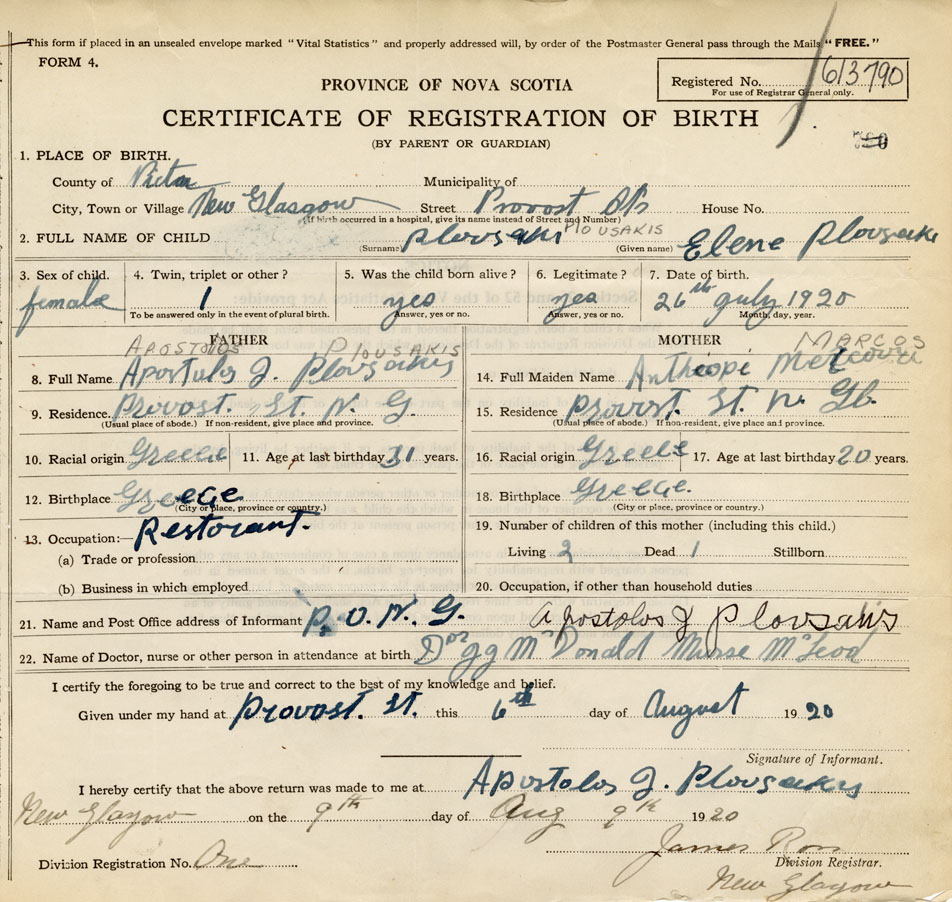 This form if placed in an unsealed envelope marked "Vital Statistics" and properly addressed will, by order of the Postmaster General pass through the Mails "FREE."
FORM 4.
Registered No. 613790
For use of Registrar General only.
PROVINCE OF NOVA SCOTIA
CERTIFICATE OF REGISTRATION OF BIRTH
(BY PARENT OR GUARDIAN)
1. PLACE OF BIRTH.
County of Municipality of
City, Town or Village New Glasgow Street Provost House No.
(If birth occurred in a hospital, give its name instead of Street and Number)
PLOUSAKIS
2. FULL NAME OF CHILD (Surname) Plousaki (Given name) Elene Plousaki
3. Sex of child. 4. Twin, triplet or other? 5. Was the child born alive? 6. Legitimate? 7. Date of birth.
female 1 yes yes 26th July 1920
To be answered only in the event of plural birth. Answer, yes or no. Answer, yes or no. Month, day, year.
FATHER MOTHER
APOSTOLOS PLOUSAKIS MARCOS
8. Full Name Apostolos J. Plousakis 14. Full Maiden Name Anthiopi
9. Residence. Provost. St. N. G. 15. Residence Provost. St. N. Gl.
(Usual place of abode.) If non-resident, give place and province. (Usual place of abode.) If non-resident, give place and province.
10. Racial origin Greece 11. Age at last birthday 31 years. 16. Racial origin Greece 17. Age at last birthday 20 years.
12. Birthplace Greece 18. Birthplace Greece.
(City or place, province or country.) (City or place, province or country.)
13. Occupation:— Restorant. 19. Number of children of this mother (including this child.)
(a) Trade or profession Living 2 Dead 1 Stillborn
(b) Business in which employed 20. Occupation, if other than household duties
21. Name and Post Office address of Informant P. O. N. G. Apostolos J Plousakis
22. Name of Doctor, nurse or other person in attendance at birth McDonald Nurse McLeod
I certify the foregoing to be true and correct to the best of my knowledge and belief.
Given under my hand at Provost. St. this 6th day of August 1920
Signature of Informant.
I hereby certify that the above return was made to me at Apostolos J. Plousakis
New Glasgow on the 9th day of Aug 9th 1920
James Ross
Division Registration No. One Division Registrar.
New Glasgow